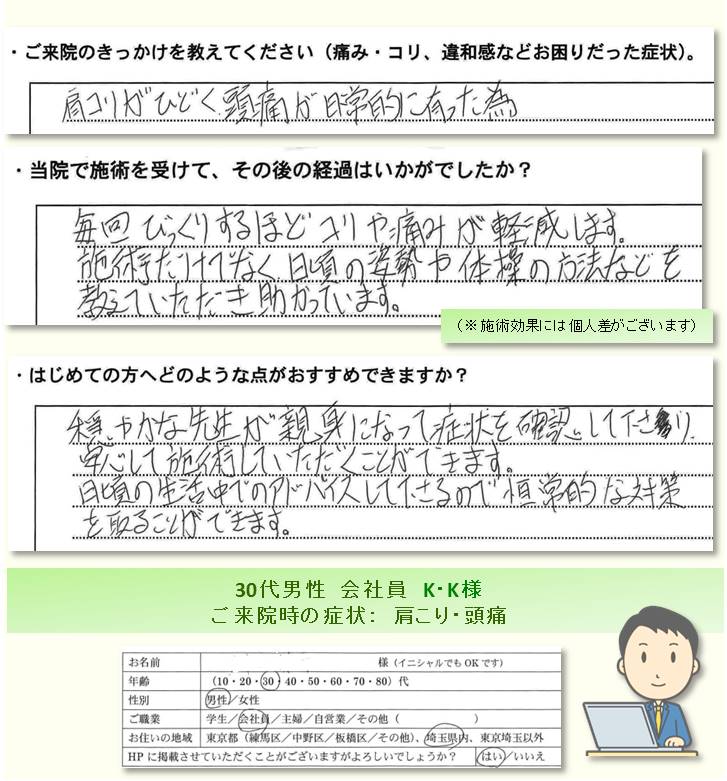 ・ご来院のきっかけを教えてください（痛み・コリ、違和感などお困りだった症状）。
肩コリがひどく頭痛が日常的に有った為
・当院で施術を受けて、その後の経過はいかがでしたか？
毎回びっくりするほどコリや痛みが軽減します。
施術だけでなく日頃の姿勢や体操の方法などを
教えていただき助かっています。
（※施術効果には個人差がございます）
・はじめての方へどのような点がおすすめできますか？
穏やかな先生が親身になって症状を確認して下さり、
安心して施術していただくことができます。
日頃の生活中でのアドバイスして下さるので恒常的な対策
を取ることができます。
30代男性 会社員 K・K様
ご来院時の症状： 肩こり・頭痛
お名前 様（イニシャルでもOKです）
年齢 （10・20・30・40・50・60・70・80）代
性別 男性／女性
ご職業 学生／会社員／主婦／自営業／その他（ ）
お住いの地域 東京都（練馬区／中野区／板橋区／その他）、埼玉県内、東京埼玉以外
HPに掲載させていただくことがございますがよろしいでしょうか？ はい／いいえ